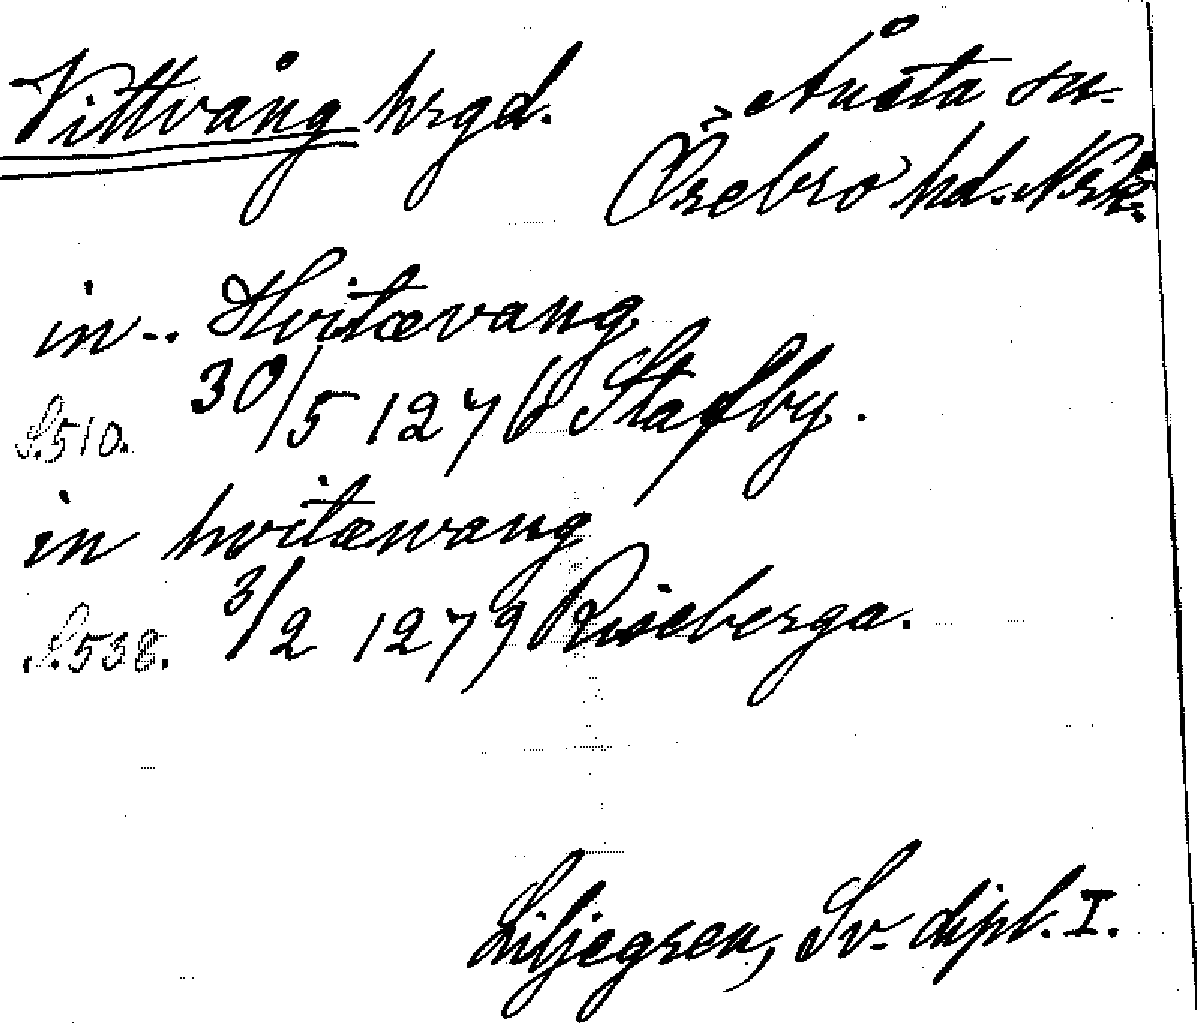 Vittvång hrgd. Ånsta sn.
Örebro hd. Nrk.
in .. Hvitævang
S. 510. 30/5 1276 Stafby.
in hvitæwang
S. 538. 3/2 1279 Riseberga.
Liljegren, Sv. dipl. I.